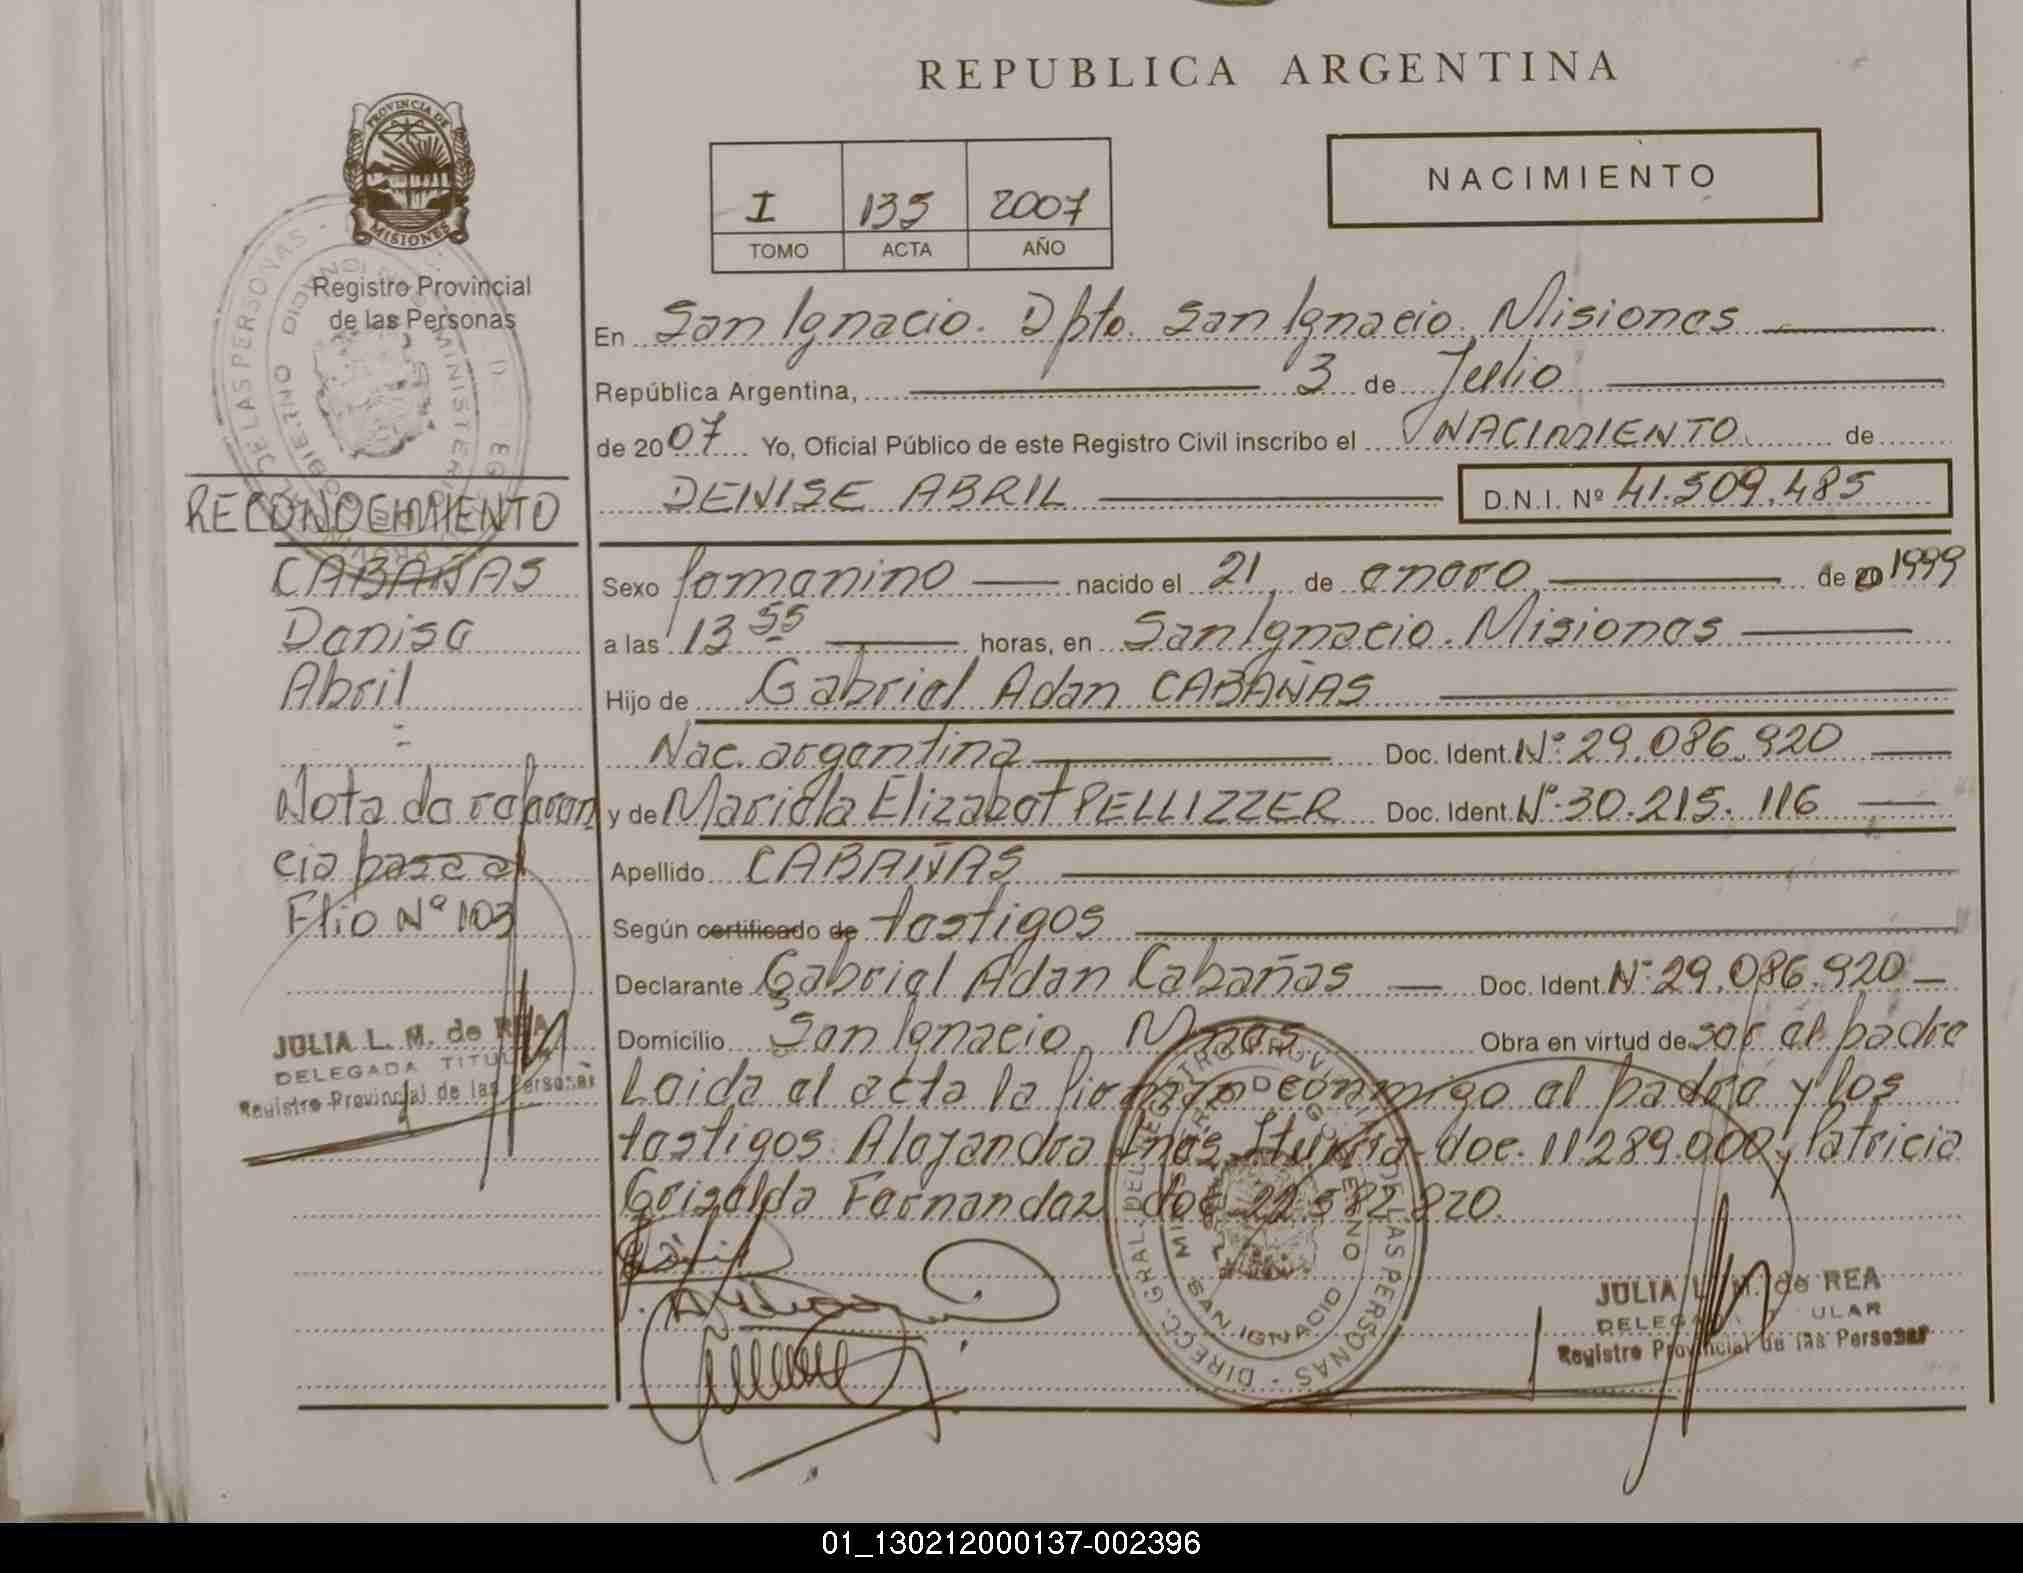 REPUBLICA ARGENTINA
PROVINCIA DE
MISIONES
Registro Provincial
de las Personas
I 135 2007
TOMO ACTA AÑO
NACIMIENTO
En San Ignacio. Dpto. San Ignacio. Misiones
República Argentina, 3 de Julio
de 2007 Yo, Oficial Público de este Registro Civil inscribo el NACIMIENTO de
DENISE ABRIL D.N.I. Nº 41.509.485
Sexo femenino nacido el 21 de enero de 20 1999
a las 13 55 horas, en San Ignacio. Misiones
Hijo de Gabriel Adan CABAÑAS
Nac. argentina Doc. Ident. Nº 29.086.920
y de Mariela Elizabet PELLIZZER Doc. Ident. Nº 30.215.116
Apellido CABAÑAS
Según certificado de testigos
Declarante Gabriel Adan Cabañas Doc. Ident. Nº 29.086.920
Domicilio San Ignacio. Mnes Obra en virtud de ser el padre
Leida el acta la firman conmigo el padre y los
testigos: Alejandra Ines doc. 11289.000 y Patricia
Griselda Fernandez doc 22.582.820.
RECONOCIMIENTO
CABAÑAS
Denise
Abril
=
Nota de referen
cia pase al
Flio Nº 103
JULIA L. M. de REA
DELEGADA TITULAR
Registro Provincial de las Personas
DIRECC. GRAL. DEL REGISTRO PROV. DE LAS PERSONAS
SAN IGNACIO
JULIA L. M. de REA
DELEGADA TITULAR
Registro Provincial de las Personas
01_130212000137-002396